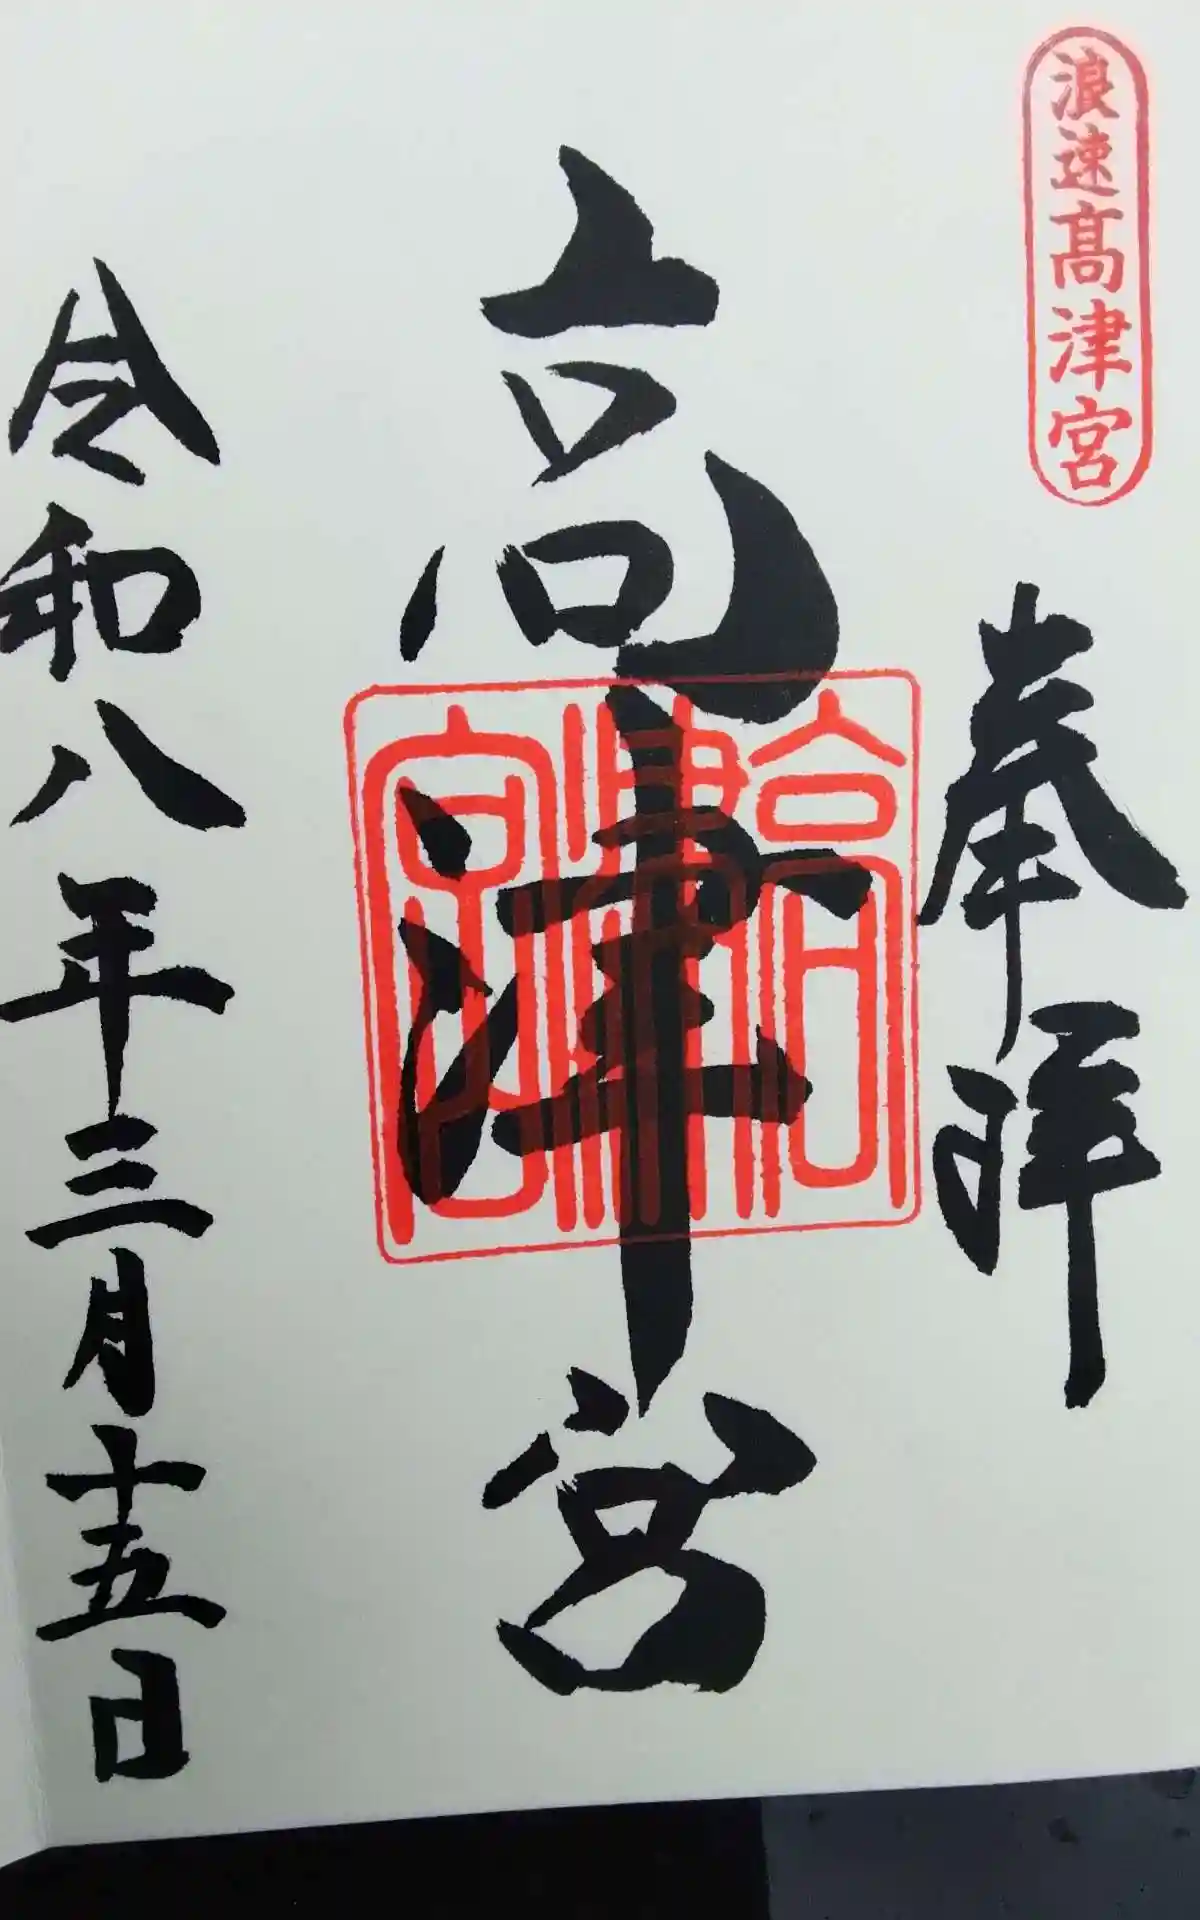 浪速髙津宮
奉拝
高津宮
高津宮
令和八年三月十五日